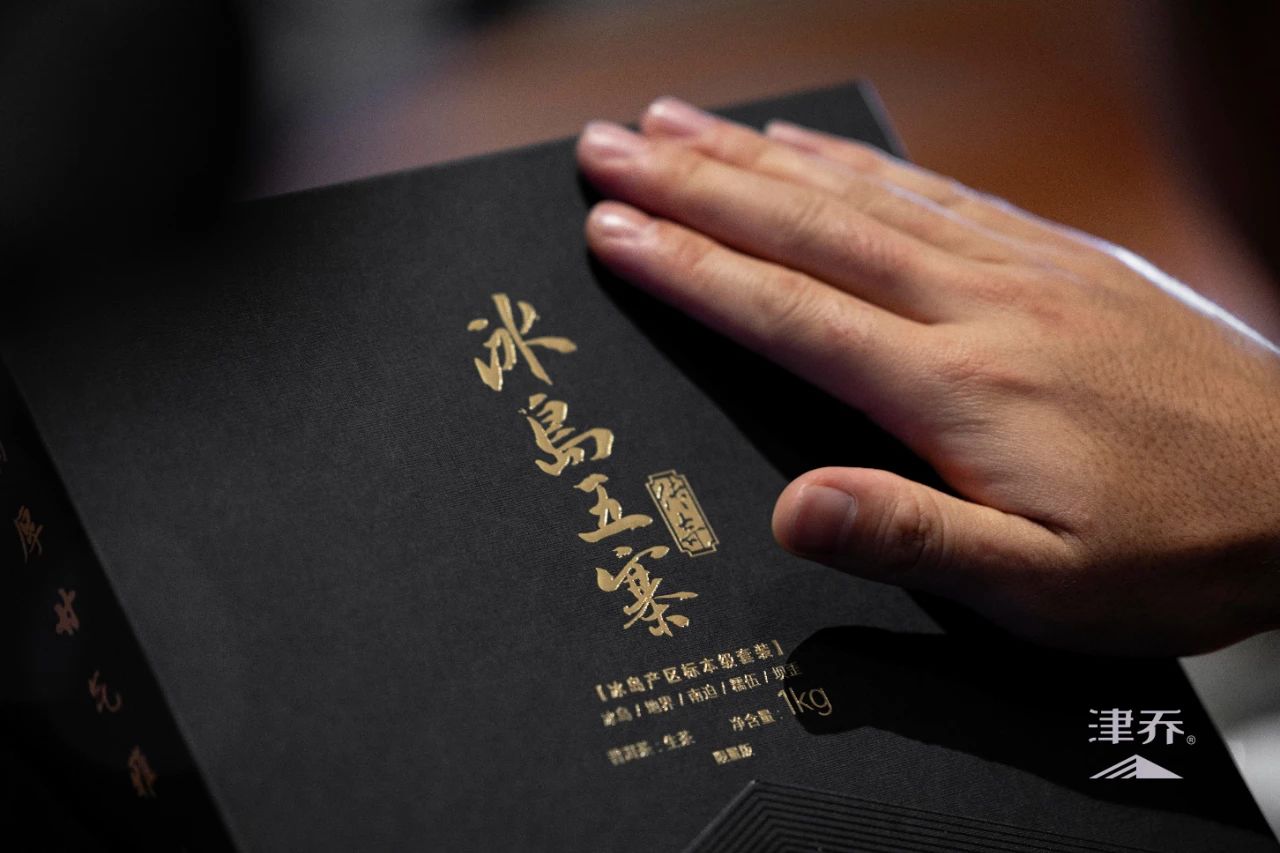 冰島五寨
【冰岛产区标本级套装】
冰岛 / 地界 / 南迫 / 糯伍 / 坝歪
普洱茶：生茶
净含量：1kg
限量版
厚
津乔®